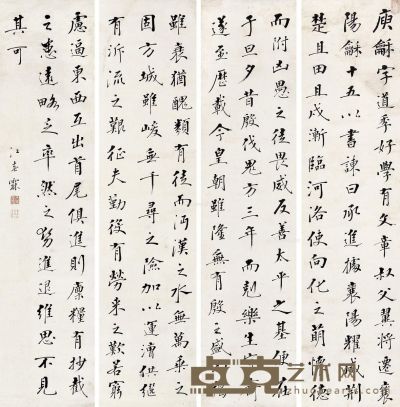 庾龢字道季好學有文章叔父翼將遷襄
陽龢十五以書諫曰承進據襄陽耀威荊
楚且田且戍漸臨河洛使向化之萌懷德
而附凶愚之徒畏威反善太平之基便在
于旦夕昔殷伐鬼方三年而剋樂生守
遂至歷載今皇朝雖隆無有殷之盛
雖衰猶醜類有徒而沔漢之水無萬乘之
固方城雖峻無千尋之險加以運漕供繼
有泝流之艱征夫勤役有勞来之歎若窮
慮逼東西互出首尾俱進則廩糧有抄截
之患遠略乏率然之勢進退維思不見
其可
江春霖
艺术网